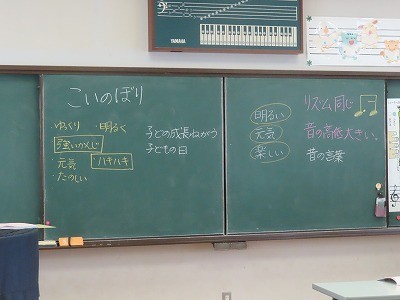 YAMAHA
こいのぼり
・ゆっくり ・明るく
強いかんじ
・元気 ・ハキハキ
・たのしい
子どの成長ねがう
子どもの日
明るい
元気
楽しい
リズム同じ
音の高低大きい。
昔の言葉